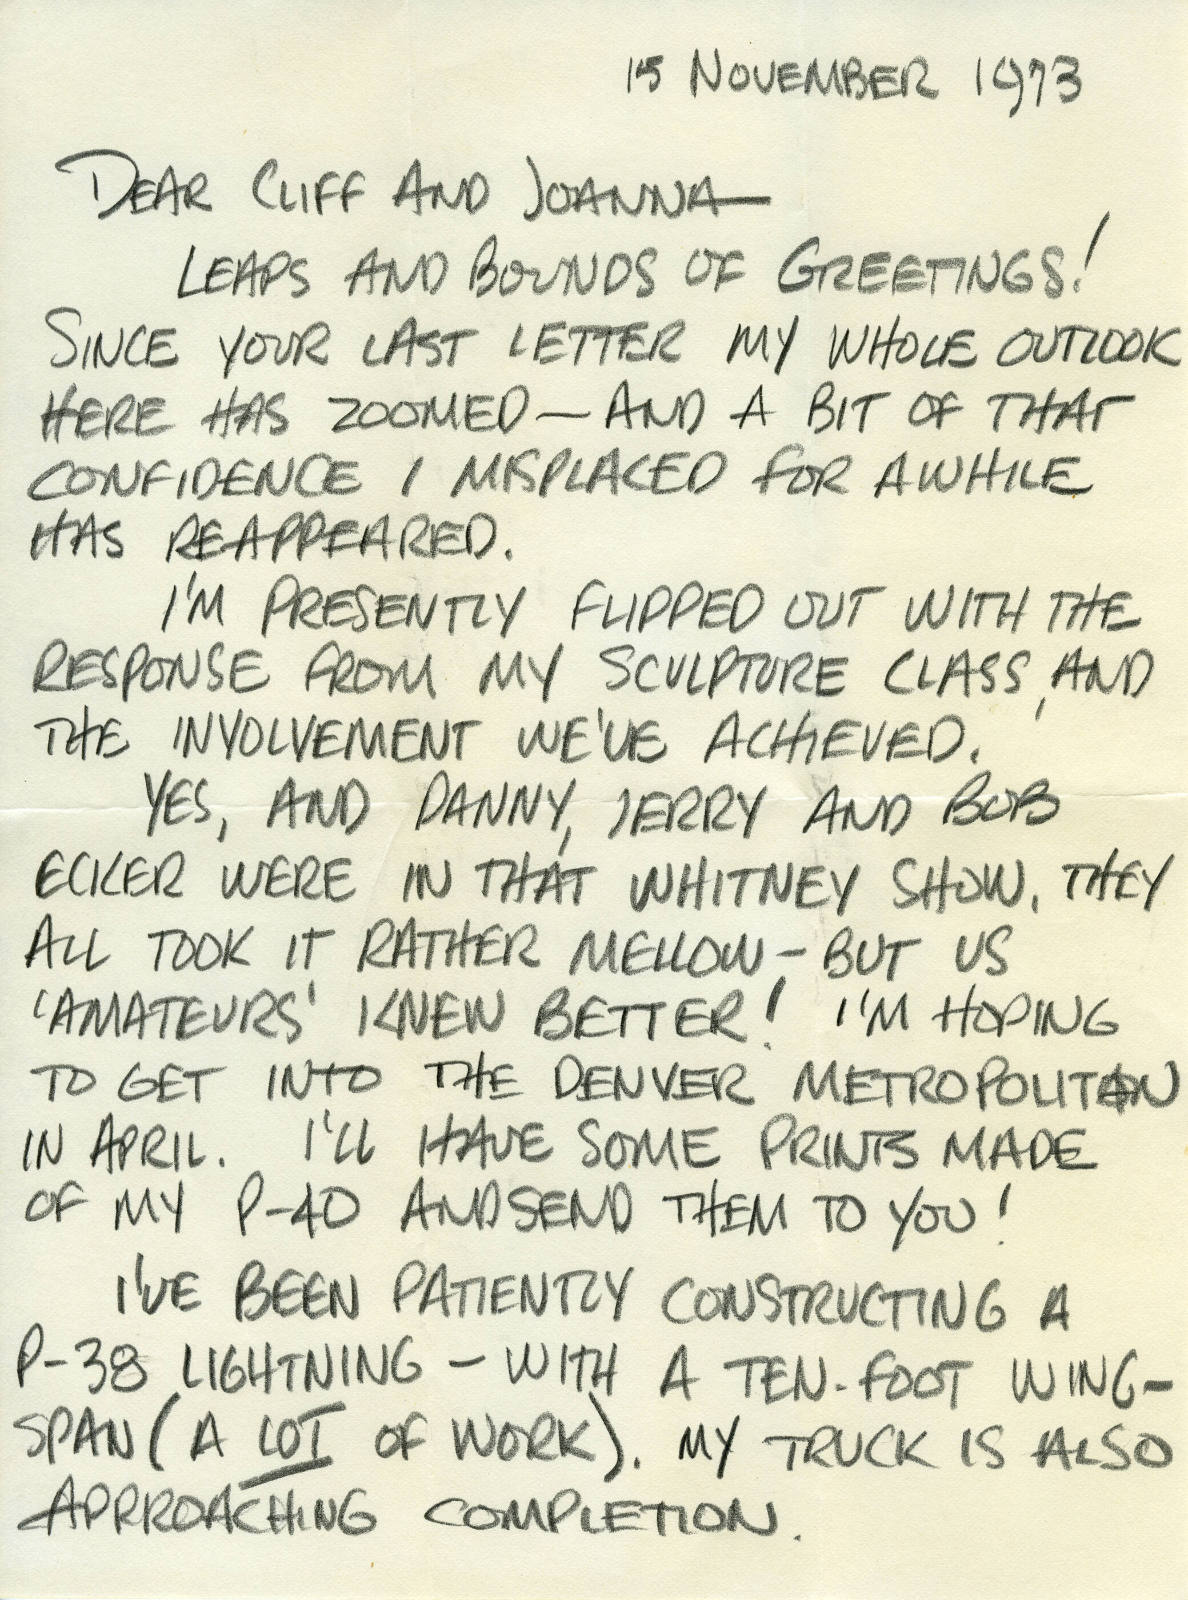 15 NOVEMBER 1973
DEAR CLIFF AND JOANNA—
LEAPS AND BOUNDS OF GREETINGS!
SINCE YOUR LAST LETTER MY WHOLE OUTLOOK
HERE HAS ZOOMED — AND A BIT OF THAT
CONFIDENCE I MISPLACED FOR AWHILE
HAS REAPPEARED.
I'M PRESENTLY FLIPPED OUT WITH THE
RESPONSE FROM MY SCULPTURE CLASS, AND
THE INVOLVEMENT WE'VE ACHIEVED.
YES, AND DANNY, JERRY AND BOB
ECKER WERE IN THAT WHITNEY SHOW. THEY
ALL TOOK IT RATHER MELLOW – BUT US
'AMATEURS' KNEW BETTER! I'M HOPING
TO GET INTO THE DENVER METROPOLITAN
IN APRIL. I'LL HAVE SOME PRINTS MADE
OF MY P-40 AND SEND THEM TO YOU!
I'VE BEEN PATIENTLY CONSTRUCTING A
P-38 LIGHTNING – WITH A TEN-FOOT WING-
SPAN (A LOT OF WORK). MY TRUCK IS ALSO
APPROACHING COMPLETION.